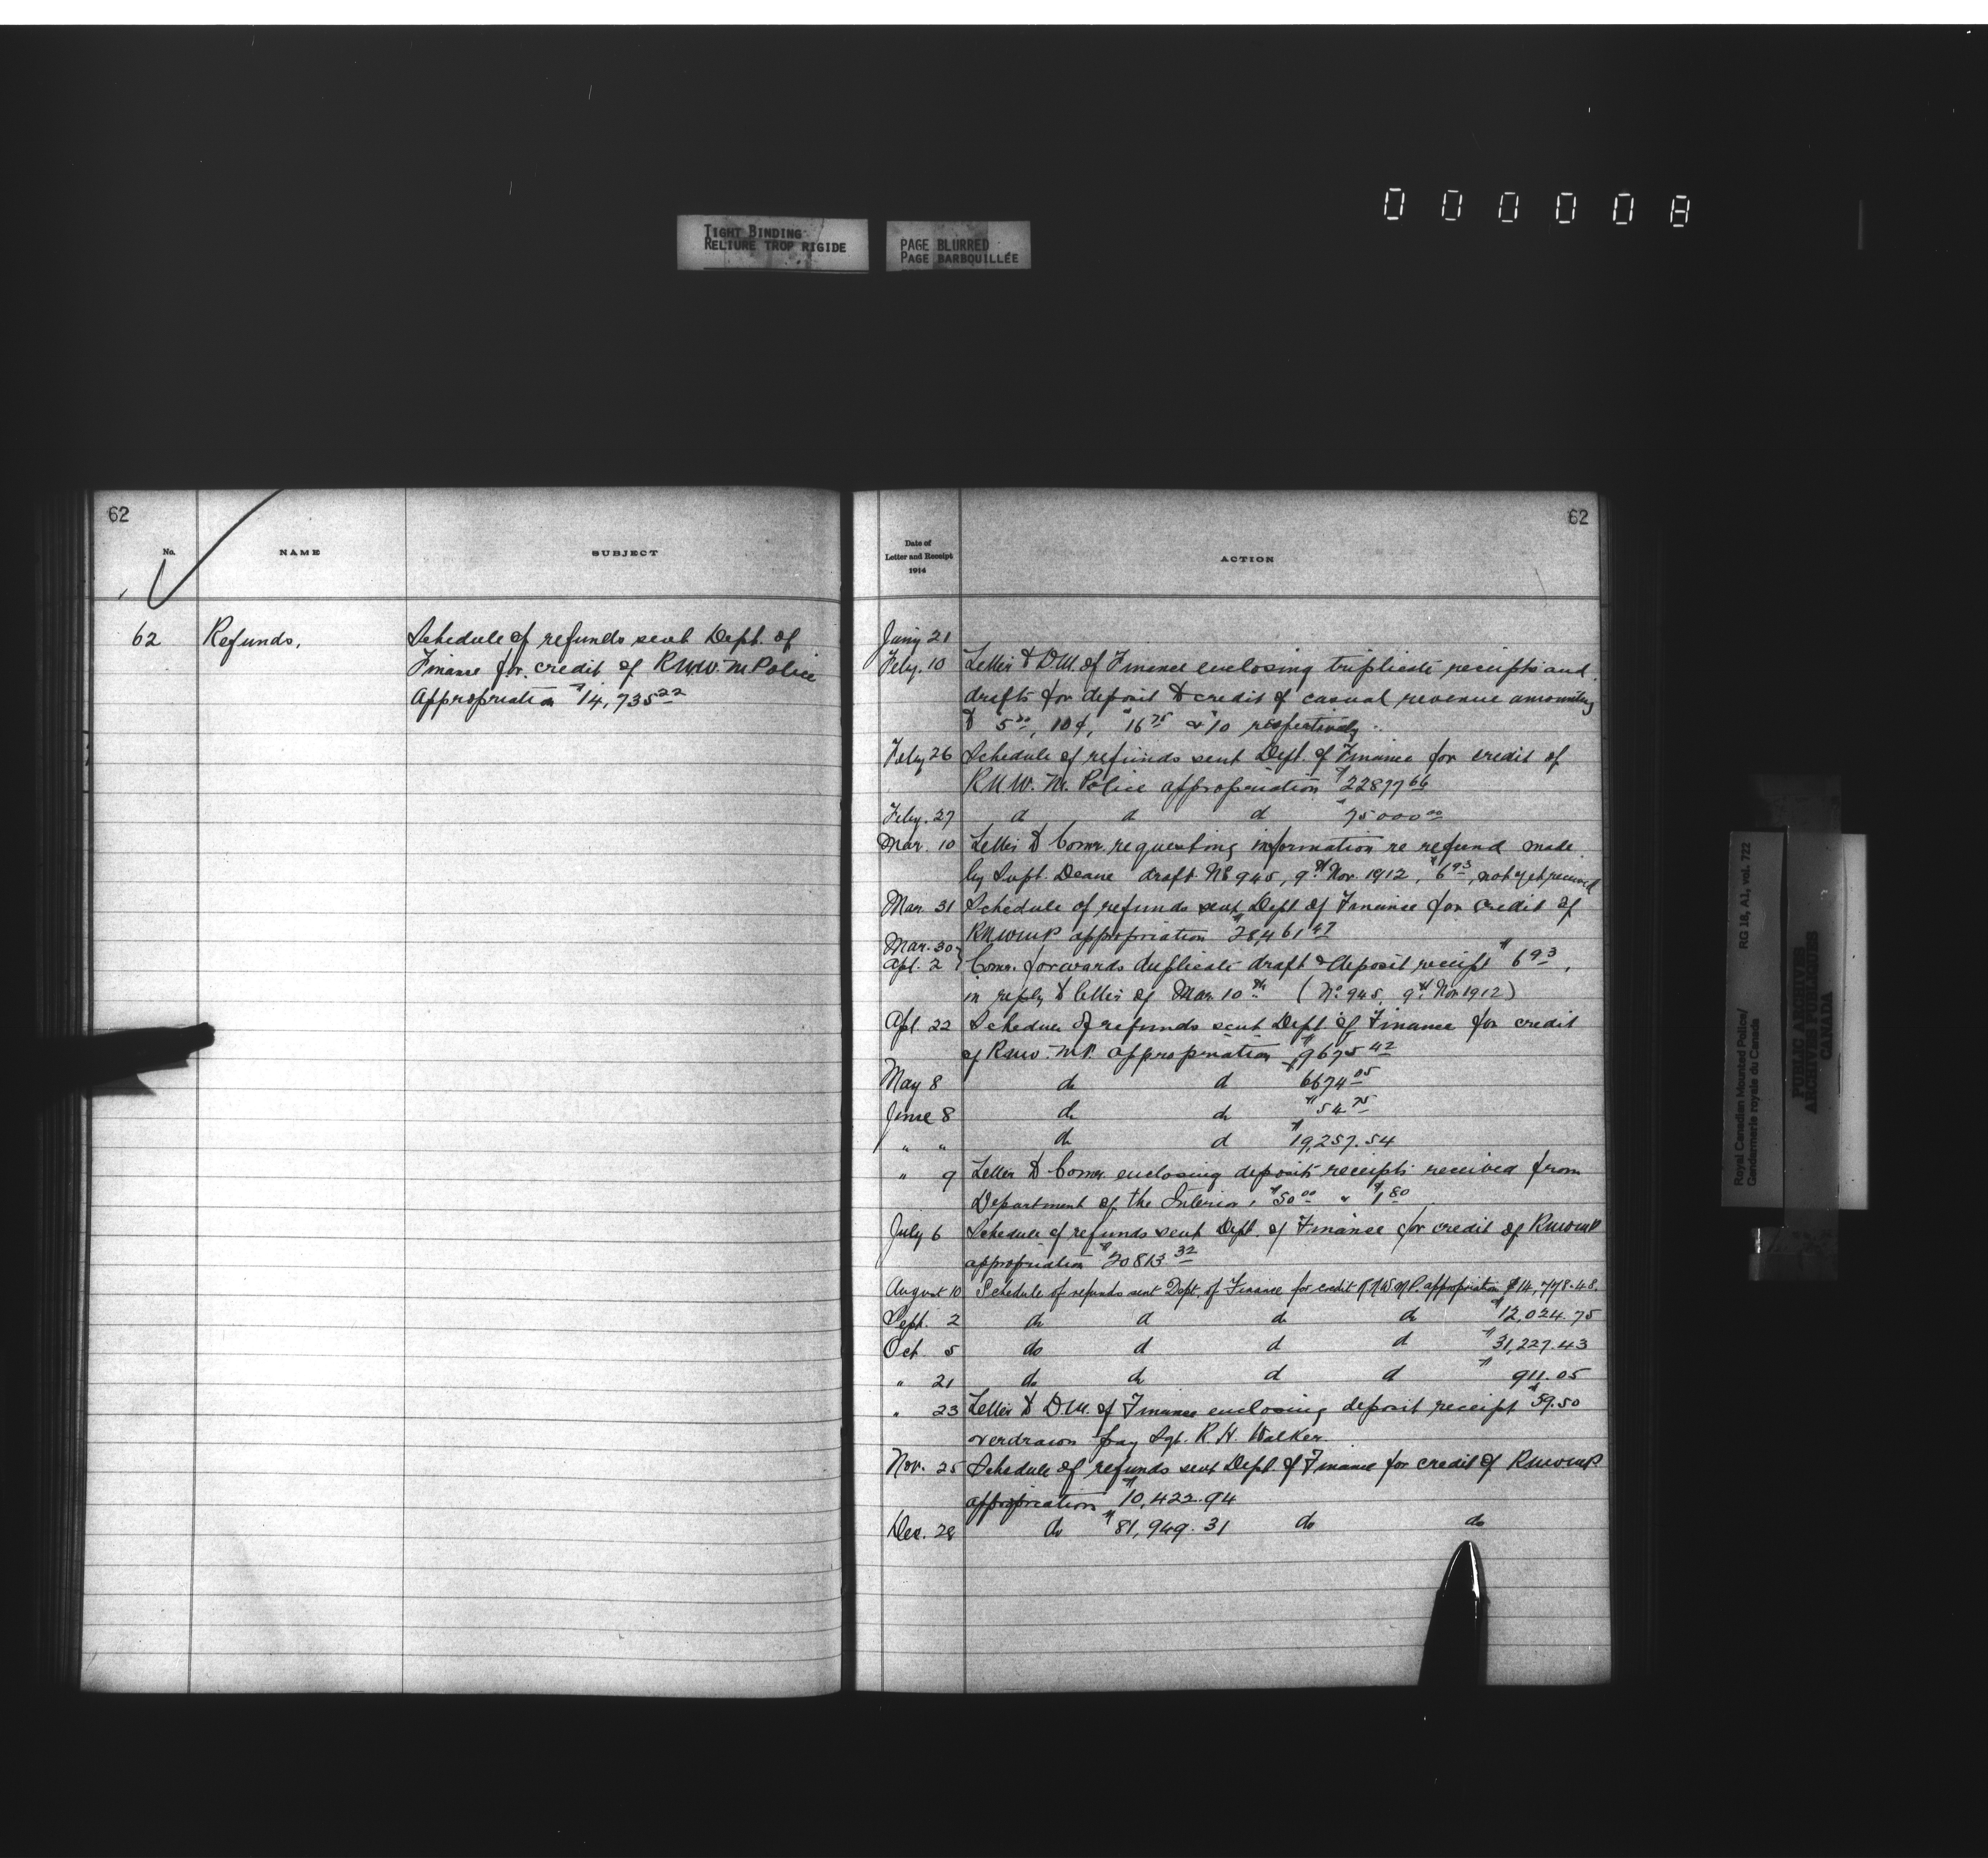 000008
TIGHT BINDING
RELIURE TROP RIGIDE
PAGE BLURRED
PAGE BARBOUILLÉE
62
No.
NAME
SUBJECT
62 Refunds, Schedule of refunds sent Dept. of
Finance for credit of R.N.W.M Police
Appropriation $14,735.22
62
Date of
Letter and Receipt
1914
ACTION
Jany 21
Feby. 10 Letter to D.M. of Finance enclosing triplicate receipts and
drafts for deposit to credit of casual revenue amounting
to 5.20, 10¢, $16.75 & $10 respectively.
Feby 26 Schedule of refunds sent Dept. of Finance for credit of
R.N.W.M. Police appropriation $22877.66
Feby. 27 do do do $75000.00
Mar. 10 Letter to Comr. requesting information re refund made
by Supt. Deane draft No 945, 9th Nov. 1912, $6.93, not yet received
Mar. 31 Schedule of refunds sent Dept of Finance for credit of
RNWMP appropriation $28461.47
Mar. 30
Apl. 2 } Comr. forwards duplicate draft & deposit receipt $6.93,
in reply to letter of Mar. 10th (No. 945, 9th Nov 1912)
Apl. 22 Schedule of refunds sent Dept. of Finance for credit
of R.N.W.M.P. appropriation $9675.42
May 8 do do $6674.05
June 8 do do $54.75
" " do do $19,257.54
" 9 Letter to Comr. enclosing deposit receipts received from
Department of the Interior, $50.00 & $1.80
July 6 Schedule of refunds sent Dept. of Finance for credit of RNWMP
appropriation $20813.32
August 10 Schedule of refunds sent Dept. of Finance for credit R.N.W.M.P. appropriation $14,778.48.
Sept. 2 do do do do $12,024.75
Oct 5 do do do do $31,227.43
" 21 do do do do $911.05
" 23 Letter to D.M. of Finance enclosing deposit receipt $59.50
overdrawn pay Sgt. R.H. Walker.
Nov. 25 Schedule of refunds sent Dept. of Finance for credit of RNWMP.
appropriation $10,422.94
Dec. 28 do $81,949.31 do do
Royal Canadian Mounted Police/
Gendarmerie royale du Canada
RG 18, A1, vol. 722
PUBLIC ARCHIVES
ARCHIVES PUBLIQUES
CANADA